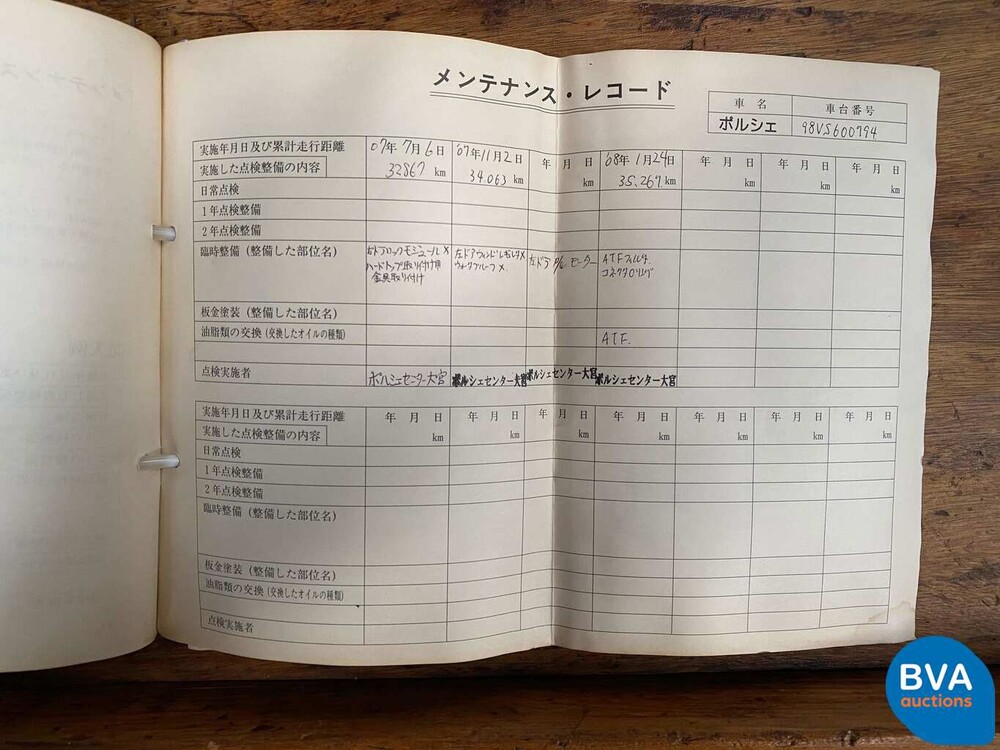 メンテナンス・レコード
車名 車台番号
ポルシェ 98VS600794
実施年月日及び累計走行距離 07年7月6日 07年11月2日 年 月 日 08年1月24日 年 月 日 年 月 日 年 月 日
実施した点検整備の内容 32867 km 34.063 km km 35.267 km km km km
日常点検
1年点検整備
2年点検整備
臨時整備(整備した部位名) 右ドアロックモジュール× 左ドアウィンドレギュレタ× 左ドア P/W モーター ATFフィルタ.
ハードトップ取り付け用 ウォータプルーフ×. コネクタOリング
金具取り付け
板金塗装(整備した部位名)
油脂類の交換(交換したオイルの種類) ATF.
点検実施者 ポルシェセンター大宮 ポルシェセンター大宮 ポルシェセンター大宮 ポルシェセンター大宮
実施年月日及び累計走行距離 年 月 日 年 月 日 年 月 日 年 月 日 年 月 日 年 月 日 年 月 日
実施した点検整備の内容 km km km km km km km
日常点検
1年点検整備
2年点検整備
臨時整備(整備した部位名)
板金塗装(整備した部位名)
油脂類の交換(交換したオイルの種類)
点検実施者
BVA
auctions